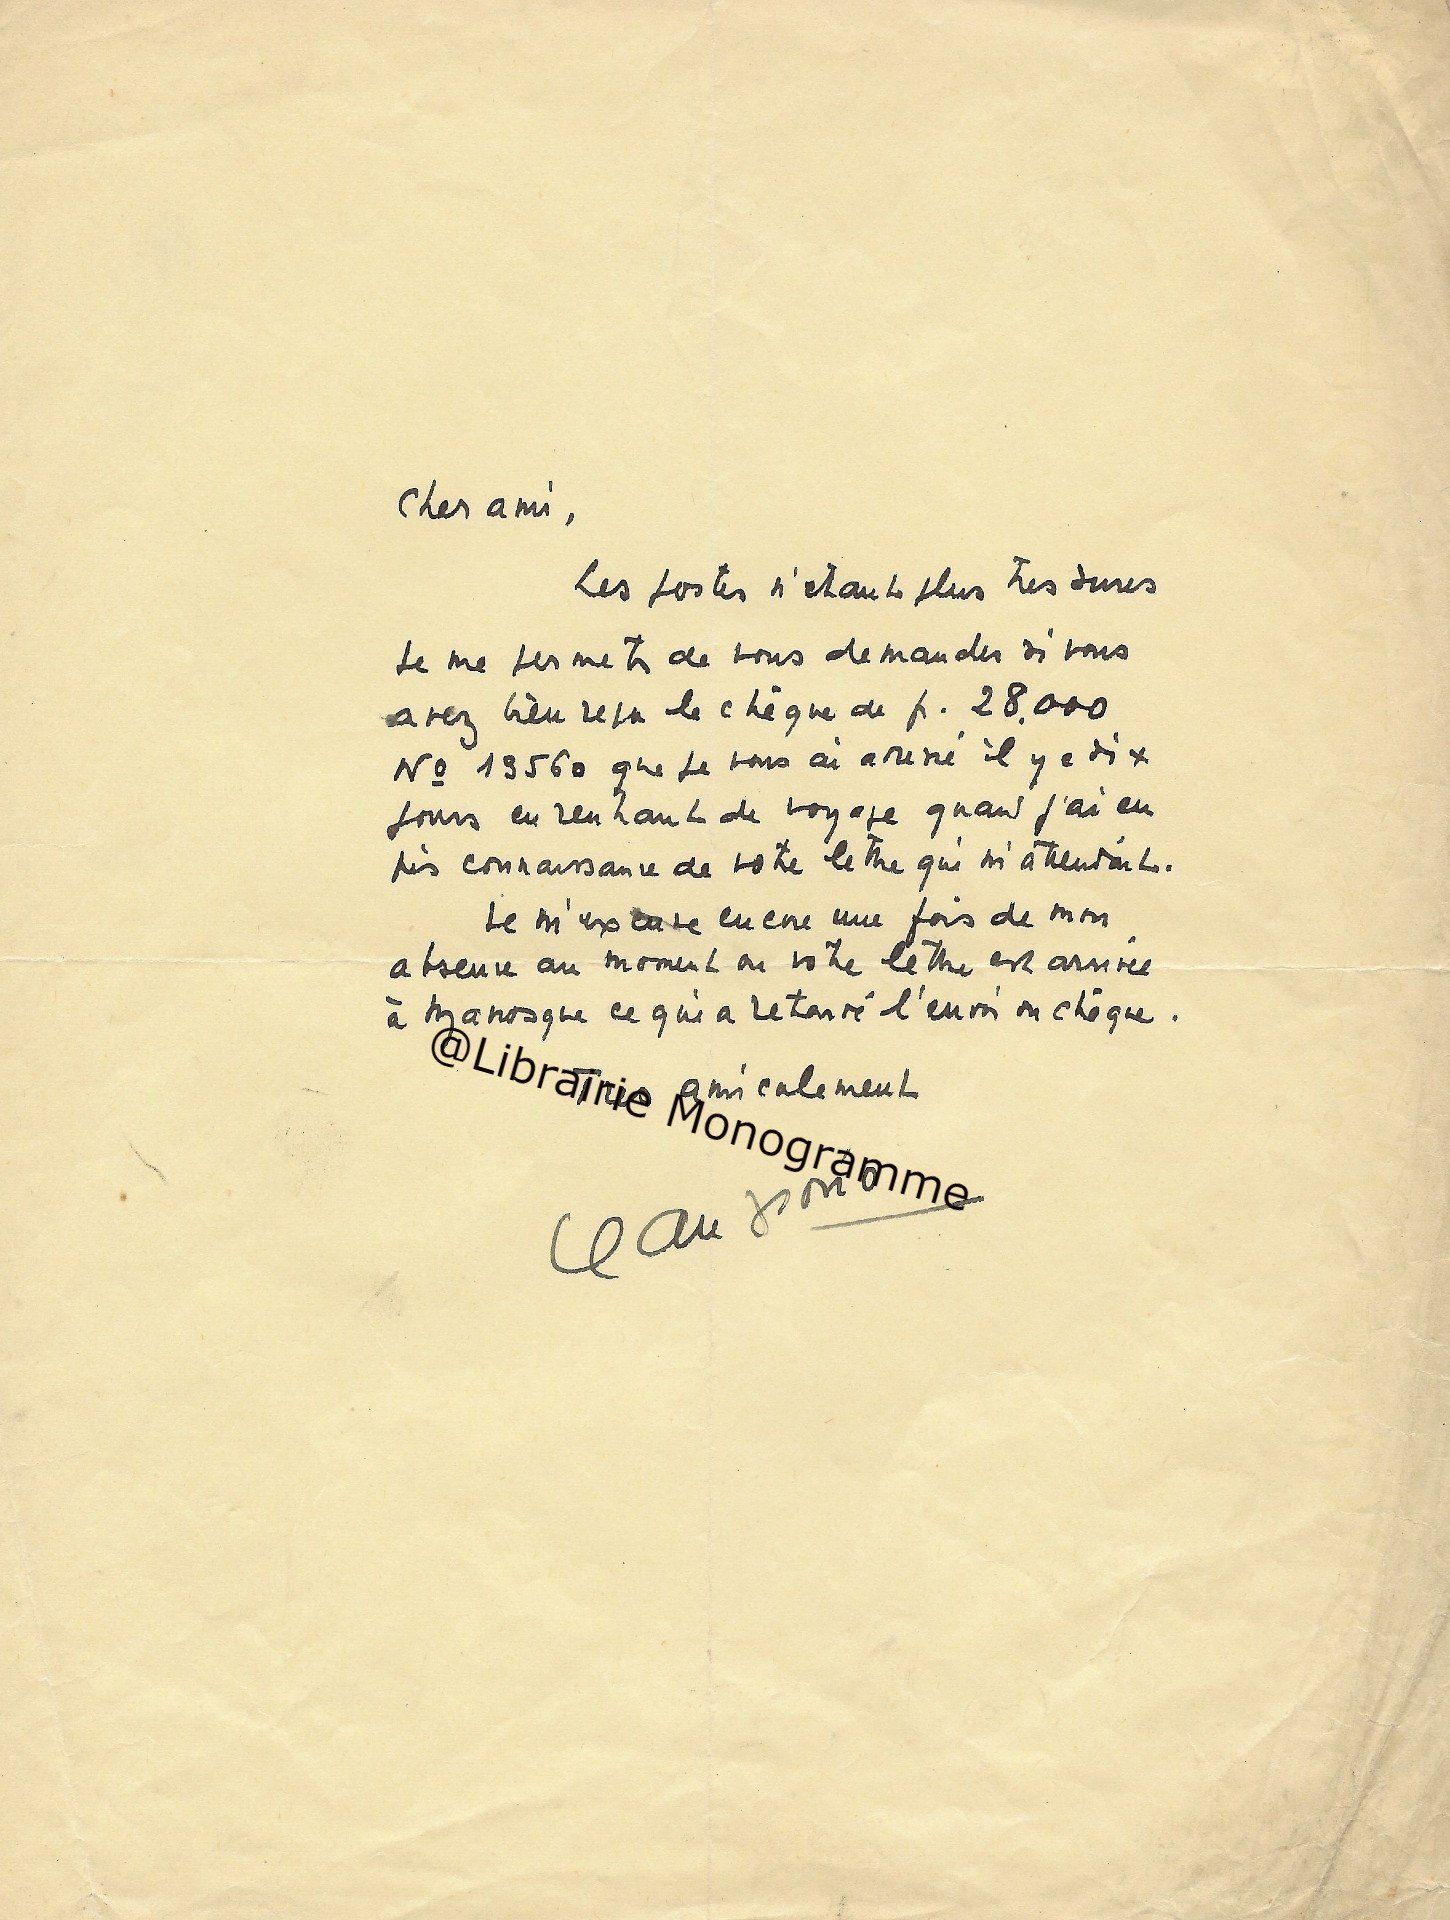 Cher ami,
Les postes n'étant plus très sures
je me permets de vous demander si vous
avez bien reçu le chèque de f. 28.000
Nº 19560 que je vous ai adressé il y a dix
jours en rentrant de voyage quand j'ai eu
pris connaissance de votre lettre qui m'attendait.
Je m'excuse encore une fois de mon
absence au moment ou votre lettre est arrivée
à Manosque ce qui a retardé l'envoi du chèque.
Très amicalement
@Librairie Monogramme
Jean Giono